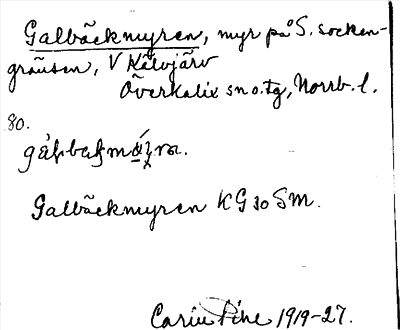 Galbäckmyren, myr på S. socken-
gränsen, V Kälvjärv
Överkalix sn o. tg, Norrb. l.
80.
Galbäckmyren KG 10 SM.
Carin Pihl 1919-27.